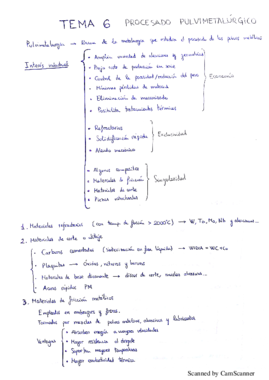 TEMA 6 PROCESADO PULVIMETALÚRGICO
Pulvimetalurgia → Rama de la metalurgia que estudia el procesado de los polvos metálicos
Interés industrial
• Amplia variedad de aleaciones y geometrías
• Bajo coste de producción en serie
• Control de la porosidad/reducción del peso
• Mínimas pérdidas de material
• Eliminación de mecanizado
• Posibilita tratamientos térmicos
Economía
• Refractarios
• Solidificación rápida
• Aleado mecánico
Exclusividad
• Algunos composites
• Materiales de fricción
• Materiales de corte
• Piezas estructurales
Singularidad
1. Materiales refractarios (con temp. de fusión > 2000°C) → W, Ta, Mo, Nb y aleaciones...
2. Materiales de corte o utillaje
- Carburos cementados (Sinterización en fase líquida) → WC+Co
- Plaquitas → Cermets, nitruros y boruros
- Materiales de base diamante → discos de corte, muelas abrasivas...
- Aceros rápidos PM
3. Materiales de fricción metálicos
Empleados en embragues y frenos.
Formados por mezclas de polvos metálicos, abrasivos y lubricantes
Ventajas
• Absorben energía a mayores velocidades
• Mayor resistencia al desgaste
• Soportan mayores temperaturas
• Mayor conductividad térmica
Scanned by CamScanner